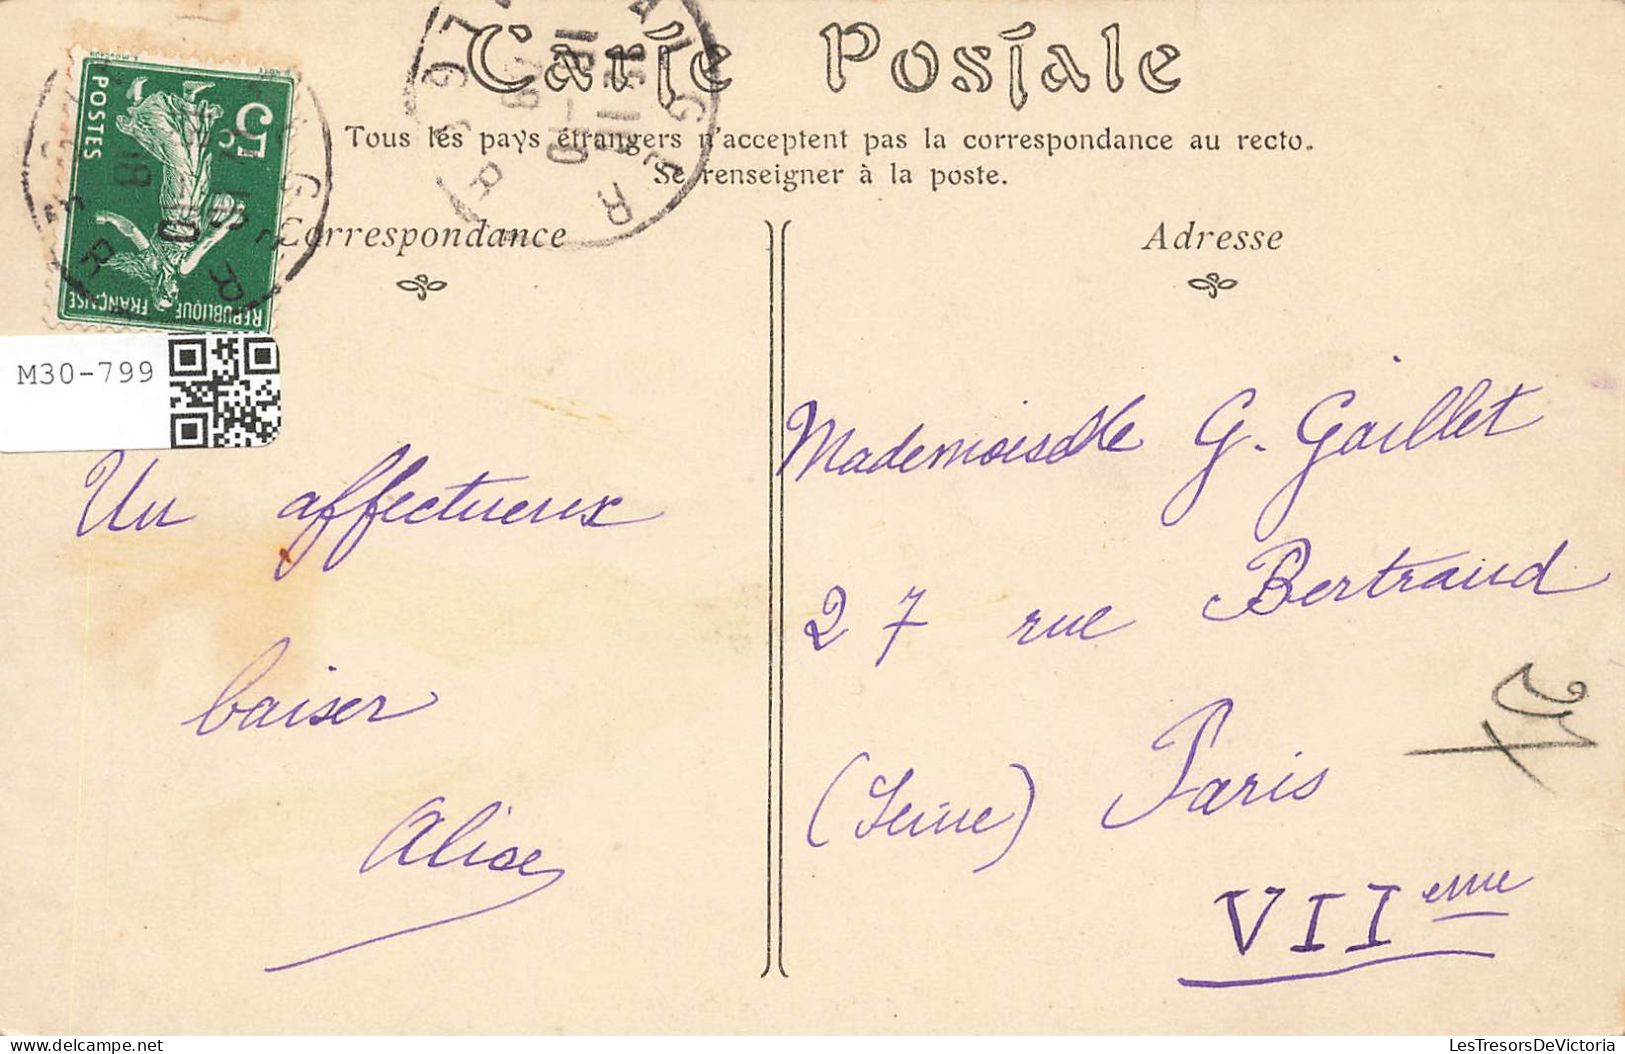 Carte Postale
Tous les pays étrangers n'acceptent pas la correspondance au recto.
Se renseigner à la poste.
Correspondance
Adresse
POSTES
5c
REPUBLIQUE FRANÇAISE
M30-799
Un affectueux
baiser
Alice
Mademoiselle G. Gaillet
27 rue Bertrand
(Seine) Paris
VIIeme
Delcampe.net
LesTresorsDeVictoria